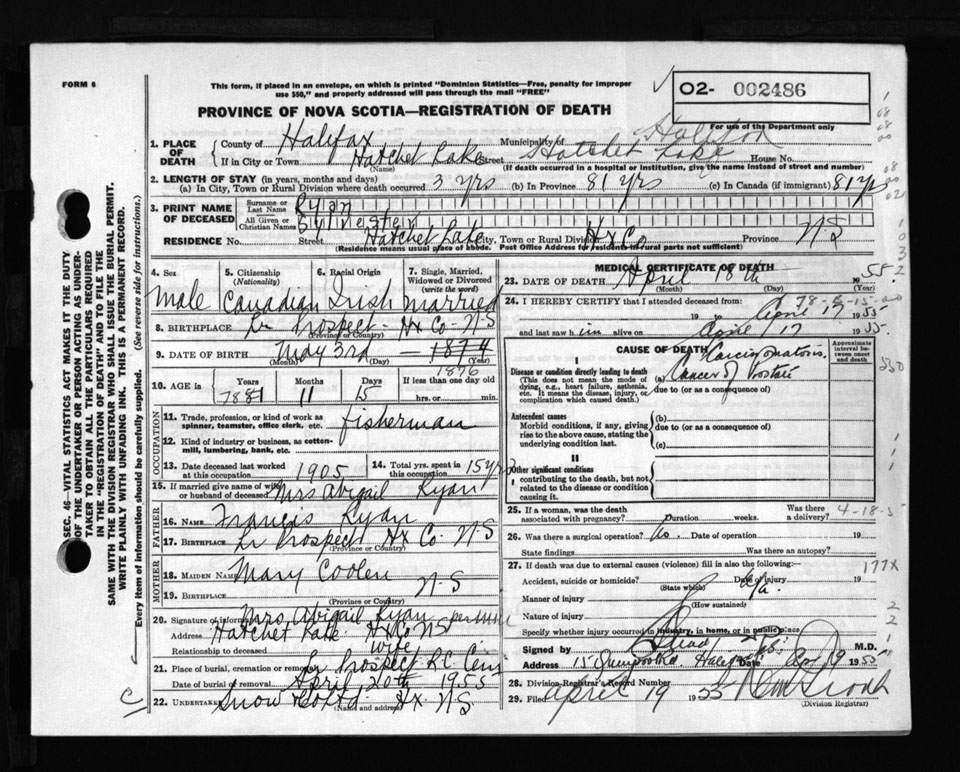 FORM 6
This form, if placed in an envelope, on which is printed "Dominion Statistics—Free, penalty for improper
use $50," and properly addressed will pass through the mail "FREE"
O2- 002486
PROVINCE OF NOVA SCOTIA—REGISTRATION OF DEATH
For use of the Department only
1. PLACE OF DEATH
County of Halifax Municipality of Halifax
If in City or Town Hatchet Lake Street Hatchet Lake House No.
(Name) (If death occurred in a hospital or institution, give the name instead of street and number)
2. LENGTH OF STAY (in years, months and days)
(a) In City, Town or Rural Division where death occurred 3 yrs (b) In Province 81 yrs (c) In Canada (if immigrant) 81 yrs
3. PRINT NAME OF DECEASED
Surname or Last Name Ryan
All Given or Christian Names Sylvester
RESIDENCE No. Street Hatchet Lake City, Town or Rural Division Hx Co Province N.S
(Residence means usual place of abode. Post Office Address for Residents in rural parts not sufficient)
4. Sex
male
5. Citizenship (Nationality)
Canadian
6. Racial Origin
Irish
7. Single, Married, Widowed or Divorced (write the word)
married
8. BIRTHPLACE Lr Prospect Hx Co N.S
(Province or County)
9. DATE OF BIRTH May 3rd 1874
(Month) (Day) (Year)
1876
10. AGE in Years Months Days If less than one day old
78 81 11 15 hrs. or min.
OCCUPATION
11. Trade, profession, or kind of work as spinner, teamster, office clerk, etc. fisherman
12. Kind of industry or business, as cotton-mill, lumbering, bank, etc.
13. Date deceased last worked at this occupation 1905
14. Total yrs. spent in this occupation 15 yrs
15. If married give name of wife or husband of deceased Mrs Abigail Ryan
FATHER
16. NAME Francis Ryan
17. BIRTHPLACE Lr Prospect Hx Co. N.S
(Province or Country)
MOTHER
18. MAIDEN NAME Mary Coolen
19. BIRTHPLACE N.S
(Province or Country)
20. Signature of informant Mrs Abigail Ryan
Address Hatchet Lake Hx Co NS
Relationship to deceased wife
21. Place of burial, cremation or removal Lr Prospect R.C. Cem
Date of burial or removal April 20th 1955
22. UNDERTAKER Snow Co Ltd. Hx. N.S
(Name and address)
MEDICAL CERTIFICATE OF DEATH
23. DATE OF DEATH April 18th 1955
(Month) (Day) (Year)
24. I HEREBY CERTIFY that I attended deceased from:
19 to April 17 1955
and last saw him alive on April 17 1955.
CAUSE OF DEATH
Approximate interval between onset and death
I
Disease or condition directly leading to death
(This does not mean the mode of dying, e.g., heart failure, asthenia, etc. It means the disease, injury, or complication which caused death.)
(a) Carcinomatosis.
Cancer of Prostate
due to (or as consequence of)
Antecedent causes
Morbid conditions, if any, giving rise to the above cause, stating the underlying condition last.
(b)
due to (or as a consequence of)
(c)
II
Other significant conditions
contributing to the death, but not related to the disease or condition causing it.
25. If a woman, was the death associated with pregnancy? Duration weeks. Was there a delivery?
4-18-5
26. Was there a surgical operation? no. Date of operation 19
State findings Was there an autopsy?
27. If death was due to external causes (violence) fill in also the following:
177X
Accident, suicide or homicide? Date of injury 19
(State which)
Manner of injury
(How sustained)
Nature of injury
Specify whether injury occurred in industry, in home, or in public place
Signed by M.D.
Address Halifax Date Apr 19 1955
28. Division Registrar's Record Number
29. Filed April 19 1955
(Division Registrar)
SEC. 46—VITAL STATISTICS ACT MAKES IT THE DUTY
OF THE UNDERTAKER OR PERSON ACTING AS UNDER-
TAKER TO OBTAIN ALL THE PARTICULARS REQUIRED
IN THE "REGISTRATION OF DEATH" AND TO FILE THE
SAME WITH THE DIVISION REGISTRAR WHO SHALL ISSUE THE BURIAL PERMIT.
WRITE PLAINLY WITH UNFADING INK. THIS IS A PERMANENT RECORD.
Every item of information should be carefully supplied. (See reverse side for instructions.)